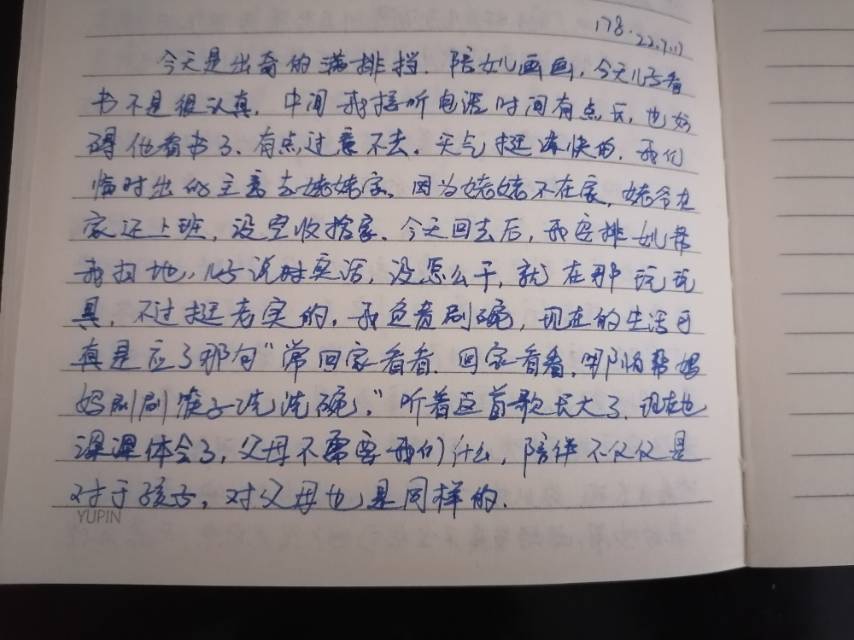 178. 22.7.17
今天是出奇的满排挡. 陪如儿画画, 今天儿子看
书不是很认真. 中间我接听电话时间有点长, 也妨
碍他看书了. 有点过意不去. 天气挺凉快的. 我们
临时出的主意去姥姥家. 因为姥姥不在家, 姥爷在
家还上班, 没空收拾家. 今天回去后, 我安排如儿帮
我扫地, 儿子说时实话, 没怎么干, 就在那玩玩
具, 不过挺老实的. 我负责刷碗, 现在的生活可
真是应了那句"常回家看看. 回家看看. 哪怕帮妈
妈刷刷筷子洗洗碗." 听着这首歌长大了. 现在也
深深体会了, 父母不需要我们什么, 陪伴不仅仅是
对于孩子, 对父母也是同样的.
YUPIN